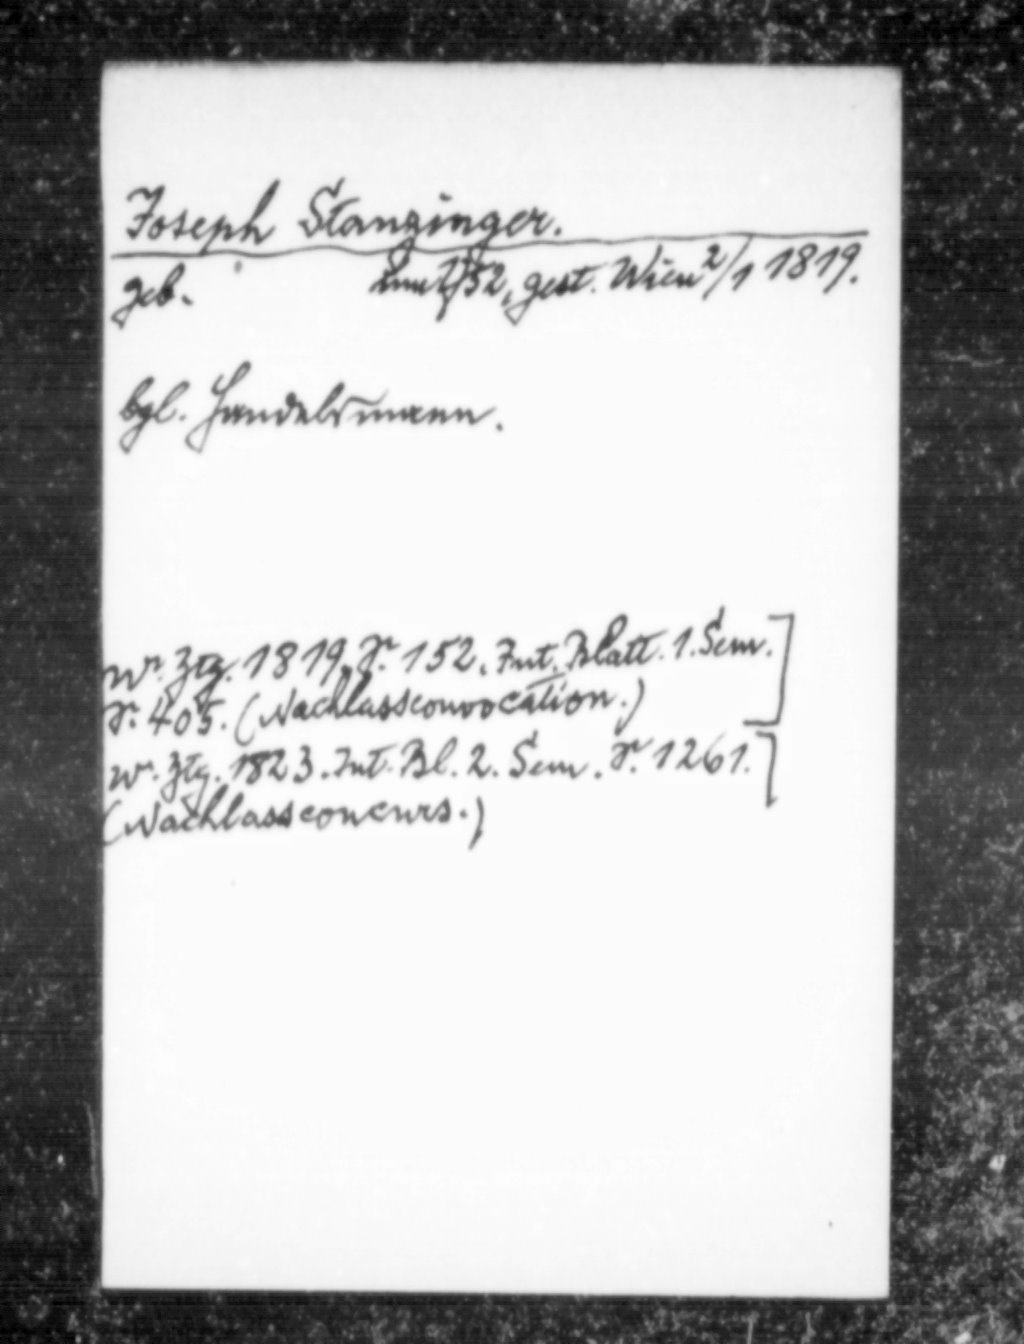 Joseph Stanzinger.
geb. 52, gest. Wien 2/1 1819.
bgl. Handelsmann.
Wr. Ztg. 1819, S. 152. Int. Blatt. 1. Sem.
S. 405. (Nachlassconvocation.)
Wr. Ztg. 1823. Int. Bl. 2. Sem. S. 1261.
(Nachlassconcurs.)